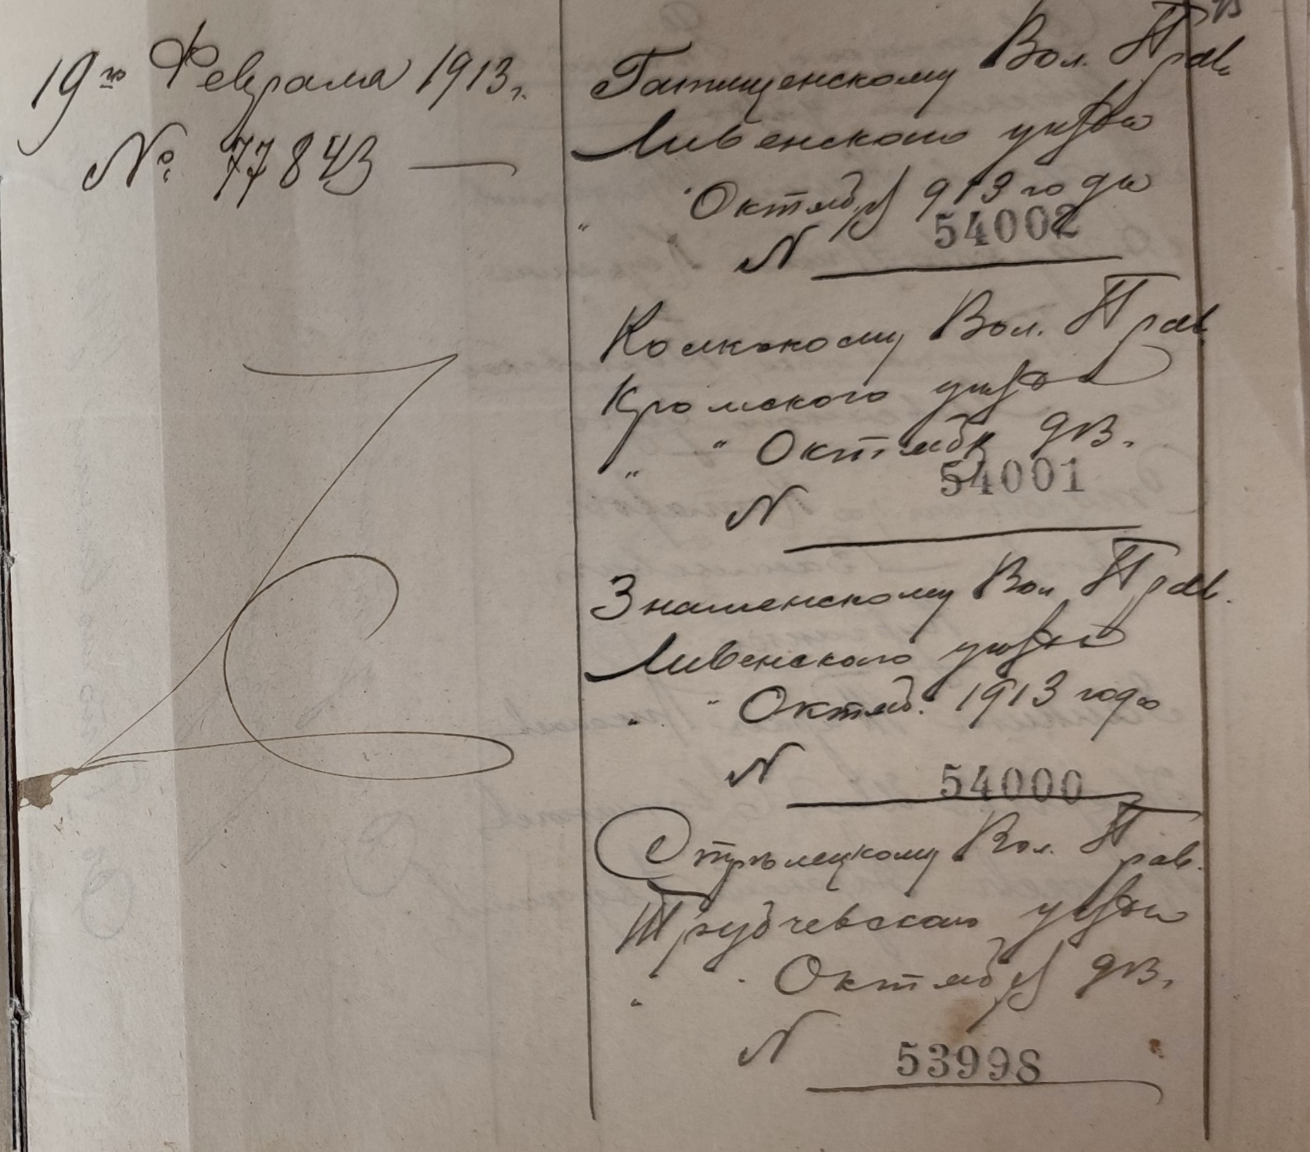 19го Февраля 1913г.
№ 77843 —
Гатищенскому Вол. Прав.
Ливенского уезда
" " Октября 913 года
N 54002
Вол. Прав.
Кромского уезда
" " Октября 913.
N 54001
Знаменскому Вол. Прав.
Ливенского уезда
" " Октяб. 1913 года
N 54000
Стрѣлецкому Вол. Прав.
Трубчевского уезда
" " Октября 913.
N 53998